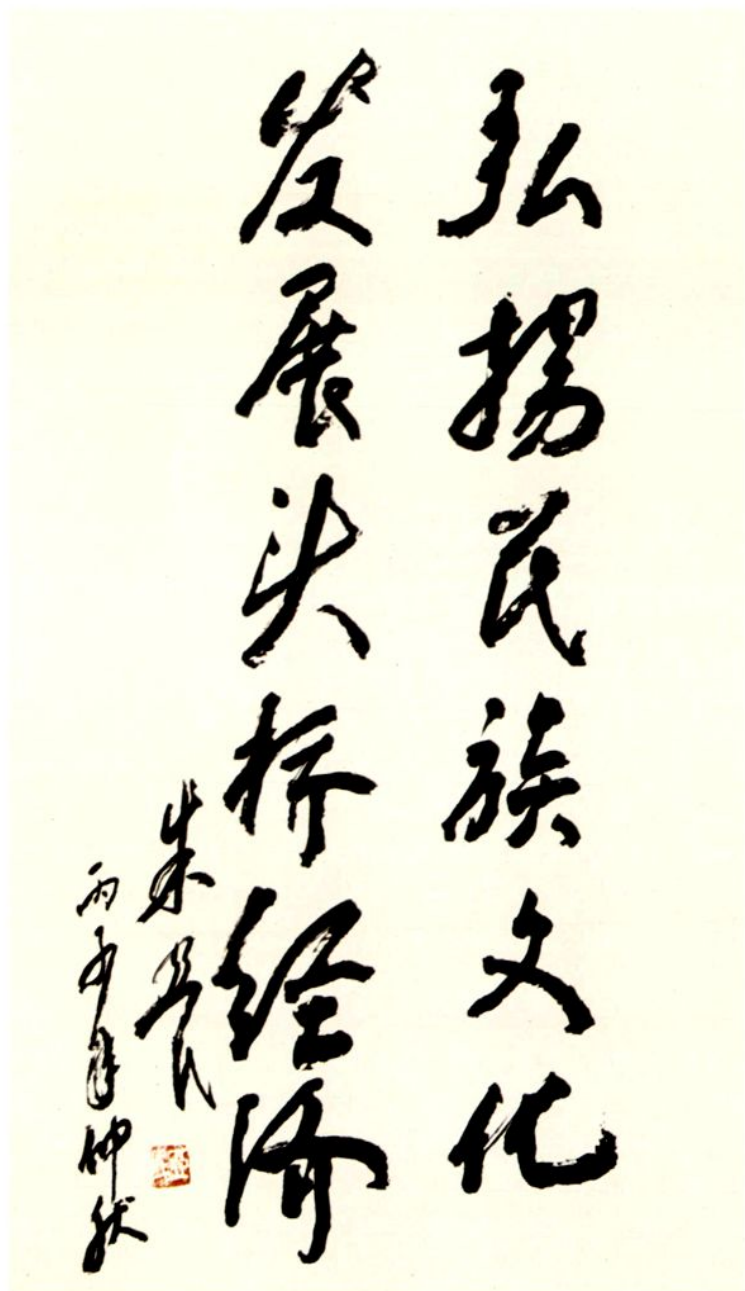 弘揚民族文化
发展头桥经济
朱
丙子年仲秋